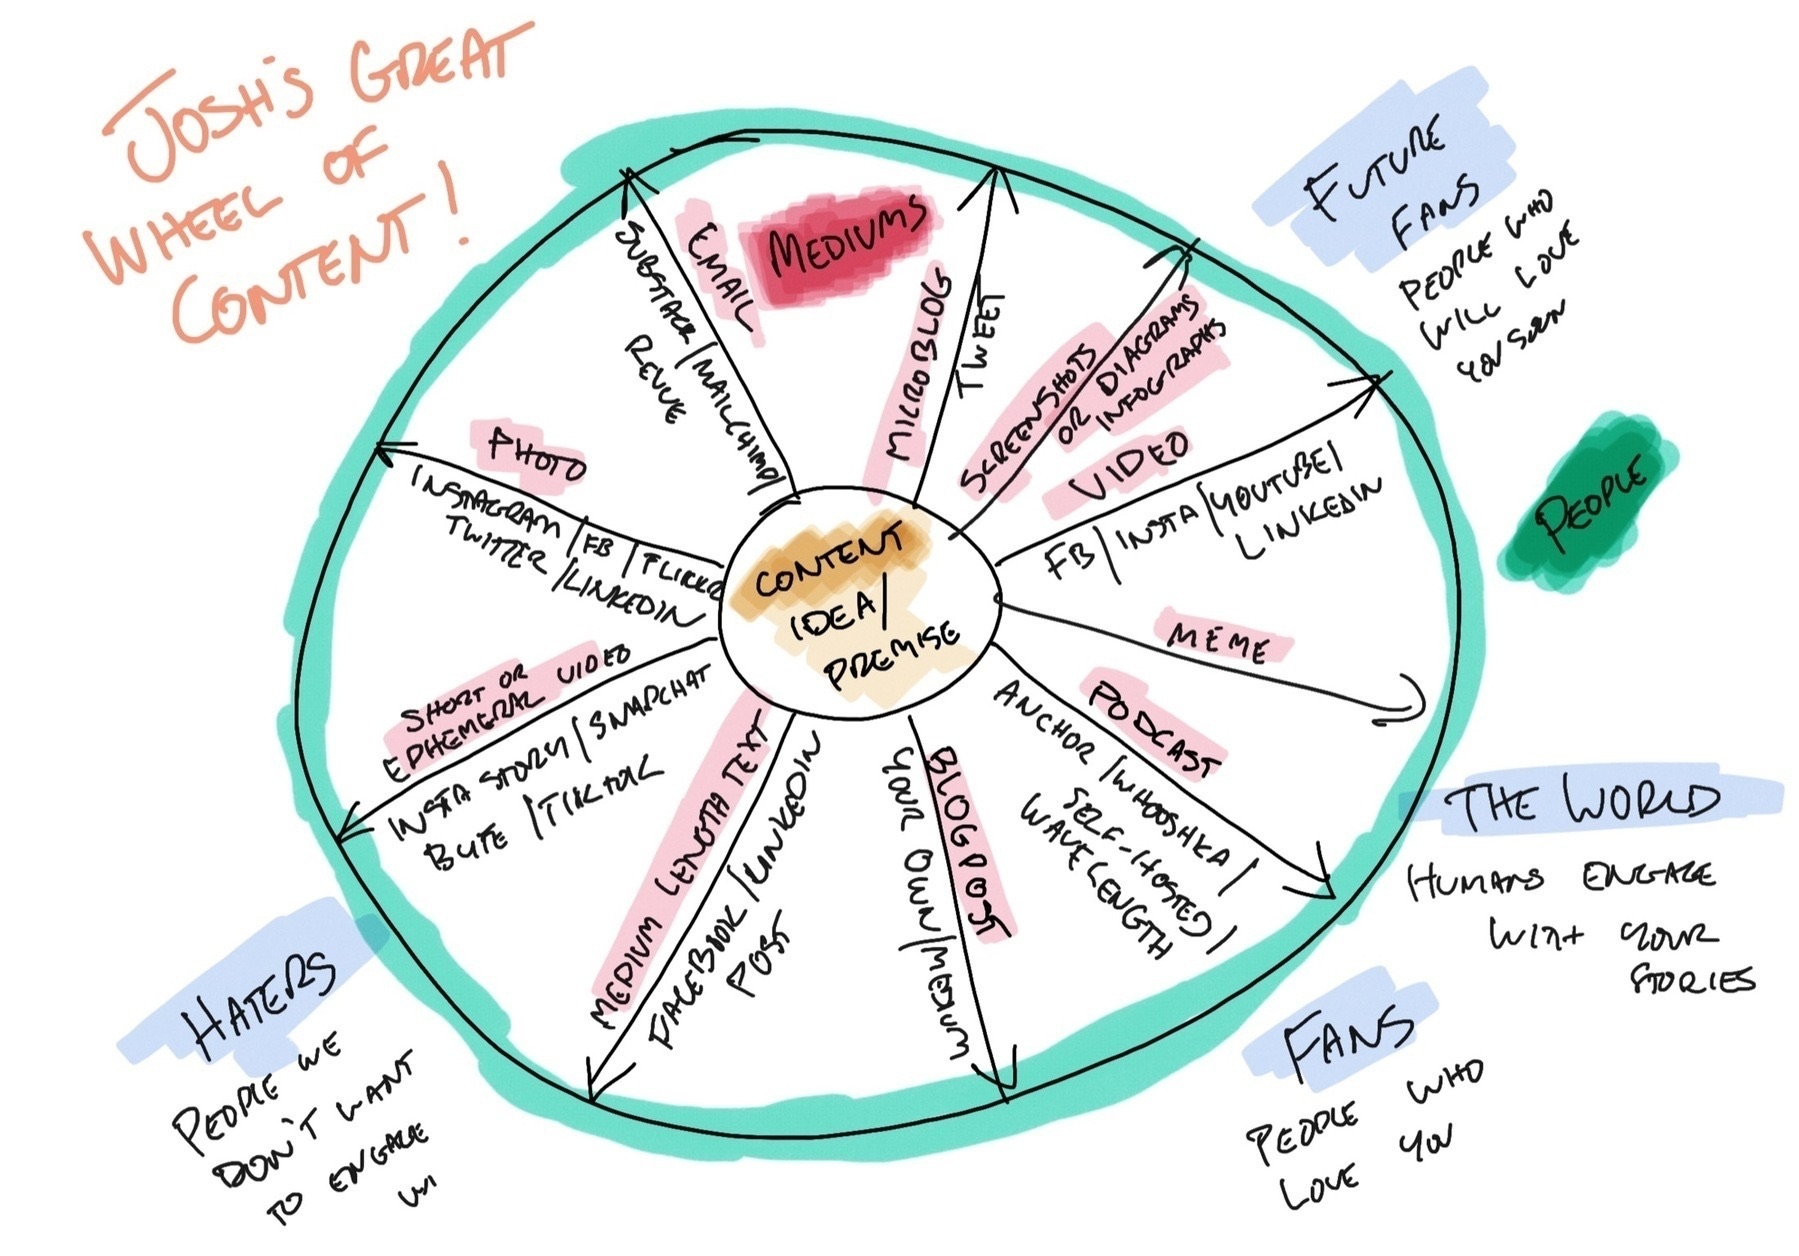 JOSH'S GREAT
WHEEL OF
CONTENT!
MEDIUMS
EMAIL
SUBSTACK/MAILCHIMP/
REVUE
MICROBLOG
TWEET
SCREENSHOTS
OR DIAGRAMS
INFOGRAPHS
VIDEO
FB/INSTA/YOUTUBE/
LINKEDIN
MEME
PODCAST
ANCHOR/WHOOSHKA/
SELF-HOSTED/
WAVELENGTH
BLOGPOST
YOUR OWN/MEDIUM
MEDIUM LENGTH TEXT
FACEBOOK/LINKEDIN
POST
SHORT OR
EPHEMERAL VIDEO
INSTA STORY/SNAPCHAT
BYTE/TIKTOK
PHOTO
INSTAGRAM/FB/FLICKR
TWITTER/LINKEDIN
CONTENT
IDEA/
PREMISE
FUTURE
FANS
PEOPLE WHO
WILL LOVE
YOU SOON
PEOPLE
THE WORLD
HUMANS ENGAGE
WITH YOUR
STORIES
FANS
PEOPLE WHO
LOVE YOU
HATERS
PEOPLE WE
DON'T WANT
TO ENGAGE